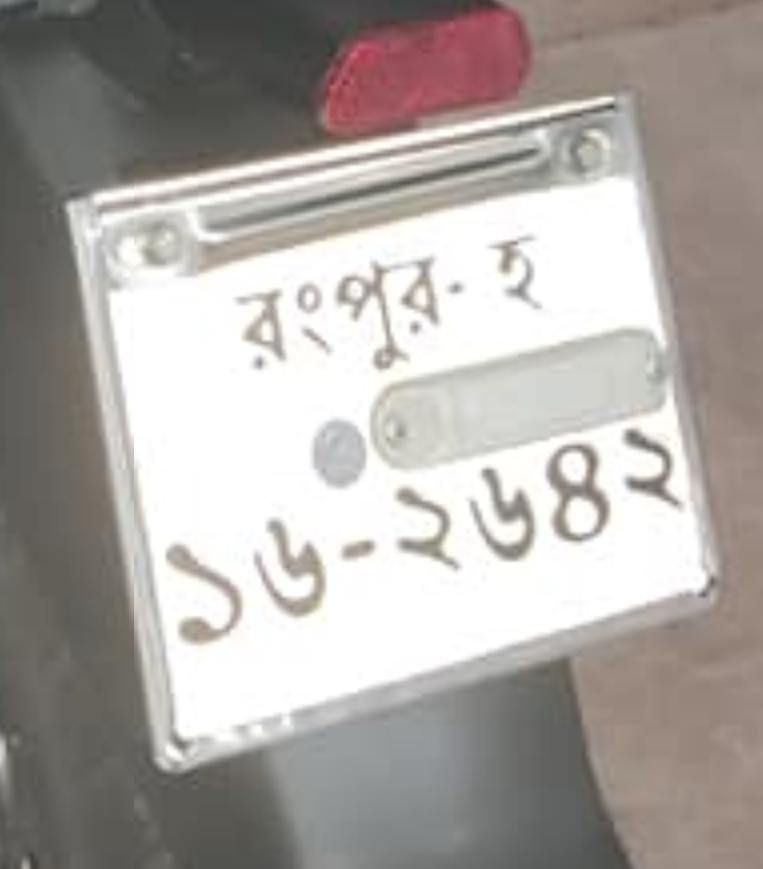 রংপুর-হ
১৬-২৬৪২